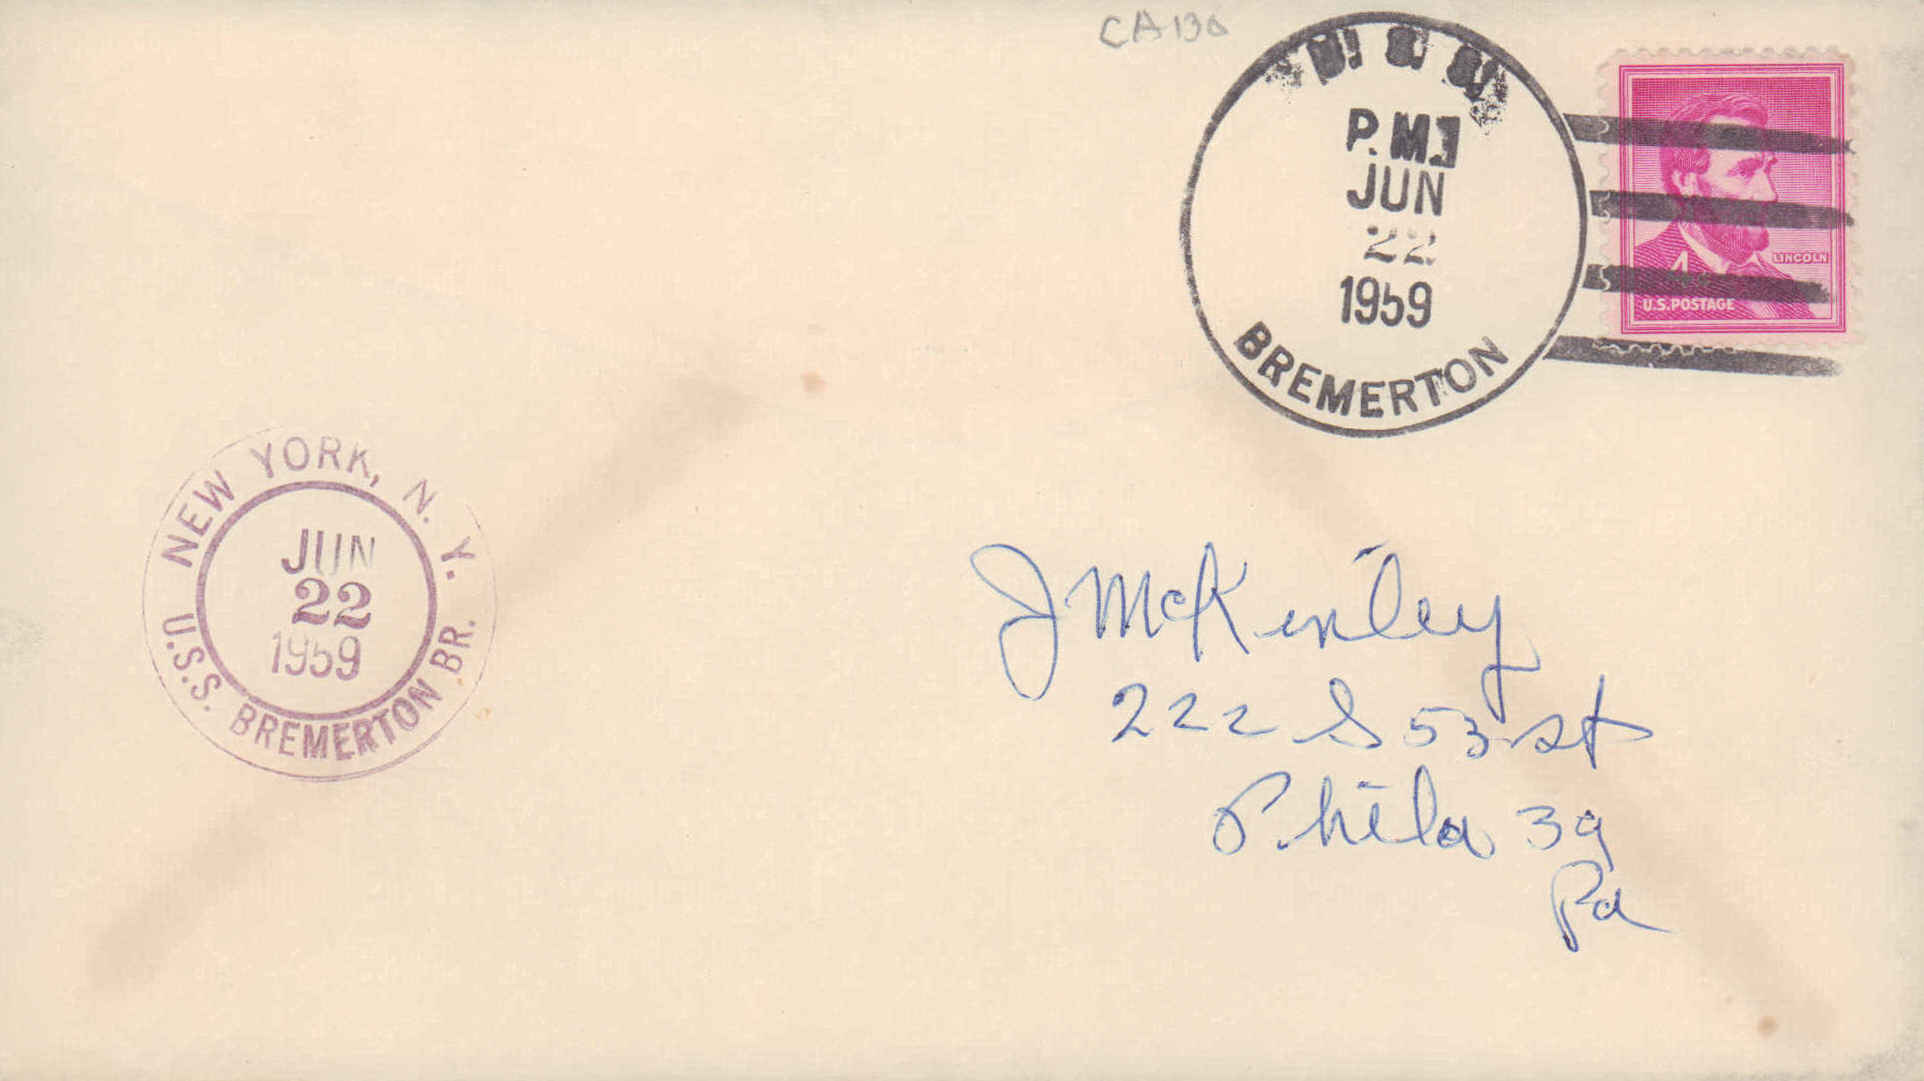 CA130
U.S.S.
P.M.
JUN
22
1959
BREMERTON
LINCOLN
4¢
U.S. POSTAGE
NEW YORK, N. Y.
JUN
22
1959
U.S.S. BREMERTON BR.
J McKinley
222 S 53 st
Phila 39
Pa